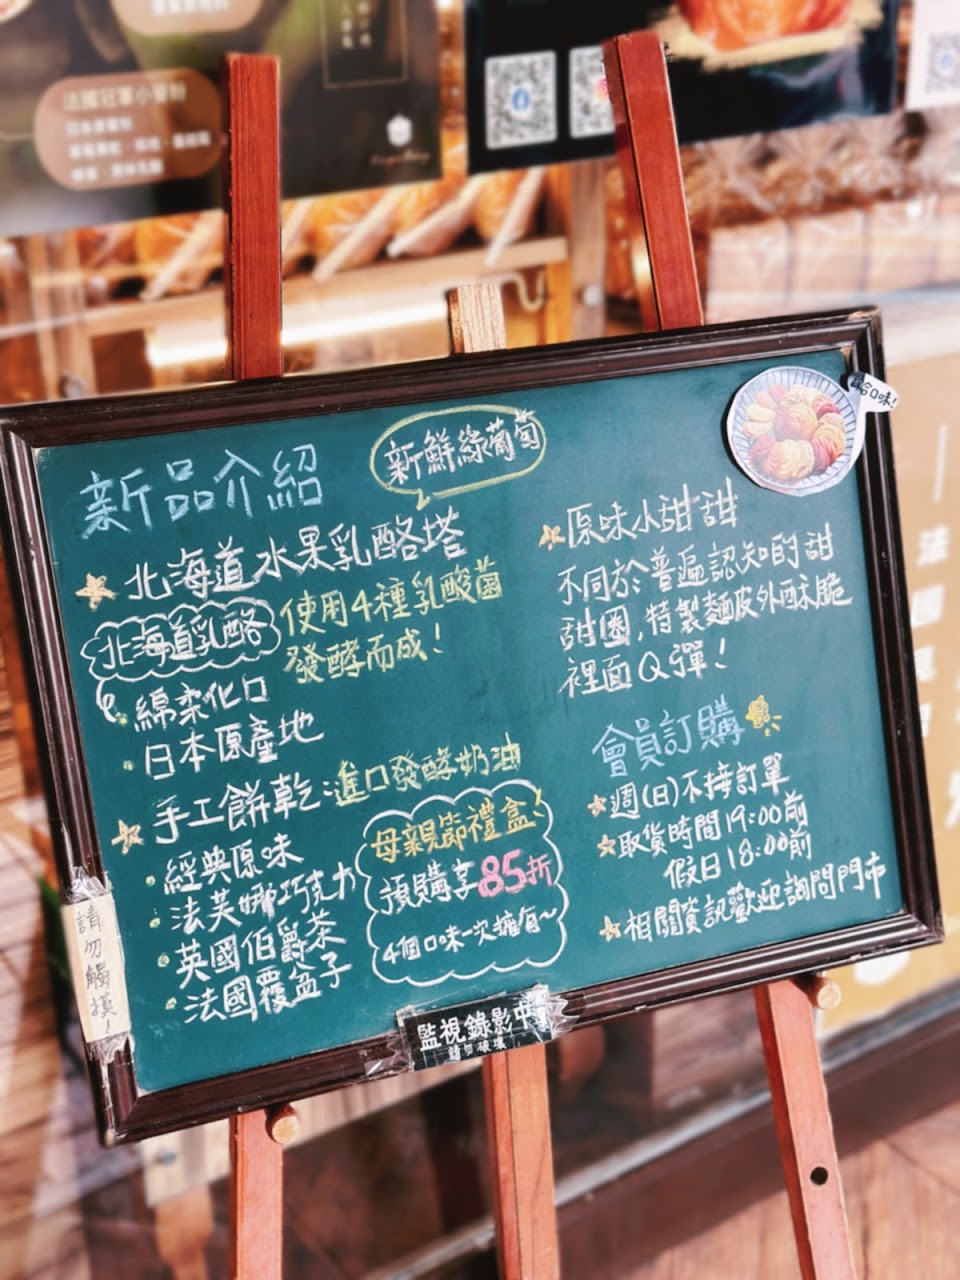 法國冠軍小麥粉
新品介紹
新鮮綠葡萄
北海道水果乳酪塔
北海道乳酪
使用4種乳酸菌
發酵而成！
綿柔化口
日本原產地
手工餅乾：進口發酵奶油
經典原味
法芙娜巧克力
英國伯爵茶
法國覆盆子
母親節禮盒！
預購享85折
4個口味一次擁有~
原味小甜甜
不同於普遍認知的甜
甜圈，特製麵皮外酥脆
裡面Q彈！
會員訂購
週(日)不接訂單
取貨時間19:00前
假日18:00前
相關資訊歡迎詢問門市
口味！
請勿觸摸！
監視錄影中
請勿破壞
法國